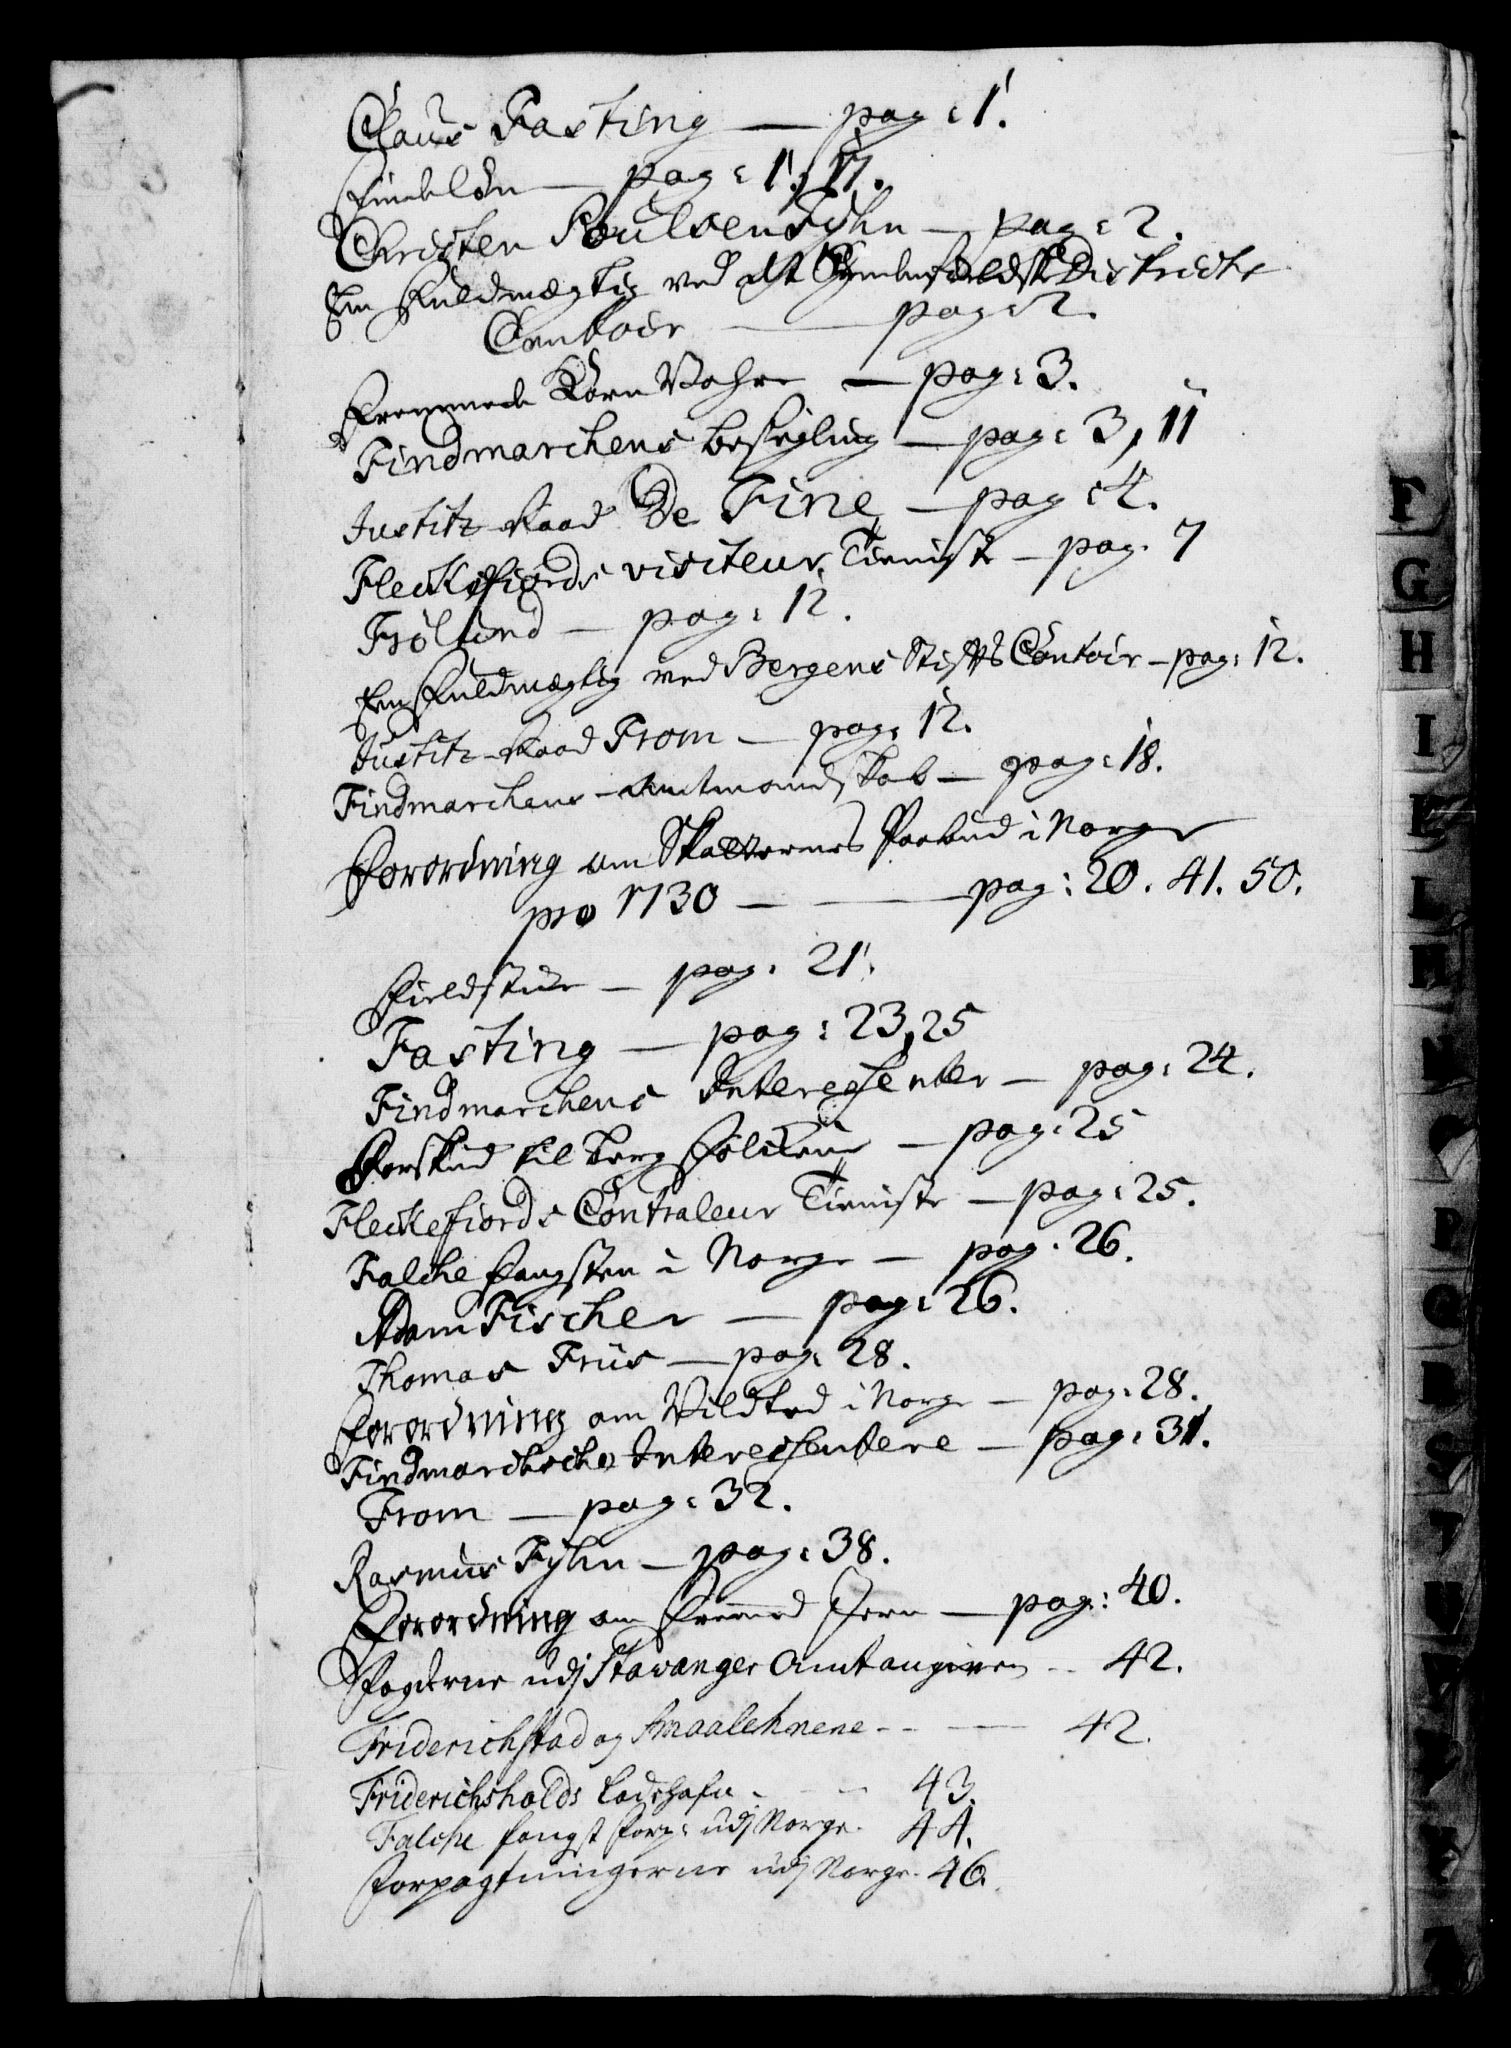 Claus Fasting — pag: 1.
Findelön — pag: 1, 17.
Christen Poulsen Fyhn — pag: 2.
En Fuldmægtig ved det Syndenfieldske Districts
Contoir — pag: 2.
Fremmede Korn Vahre — pag: 3.
Findmarchens besegling — pag: 3, 11
Justitz Raad De Fine — pag: 4.
Fleckefiords visiteur Tieniste — pag. 7
Frölund — pag: 12.
En Fuldmægtig ved Bergens Stifts Contoir — pag: 12.
Justitz-Raad From — pag: 12.
Findmarchens Amtmandskab — pag: 18.
Forordning om Skatternes Paabud i Norge
pro 1730 — — pag: 20. 41. 50.
Fieldstue — pag. 21.
Fasting — pag: 23, 25
Findmarchens Interessenter — pag: 24.
Forskud til berg Folckene — pag: 25
Fleckefiords Contraleur Tieniste — pag: 25.
Falche fangsten i Norge — pag. 26.
Adam Fischer — pag: 26.
Thomas Friis — pag: 28.
Forordning om Vildtred i Norge — pag: 28.
Findmarchsche Interessentere — pag: 31.
From — pag: 32.
Rasmus Fyhn — pag: 38.
Forordning om Fremmed Jern — pag: 40.
Fogderne udj Stavanger Amt angiven - - 42.
Friderichstad og Smaalehnene - - — 42.
Friderichshalds Ladehafn - - - 43.
Falche fangst Forp: udj Norge. 44.
Forpagtningerne udj Norge. 46.
F
G
H
I
K
L
M
N
O
P
Q
R
S
T
U